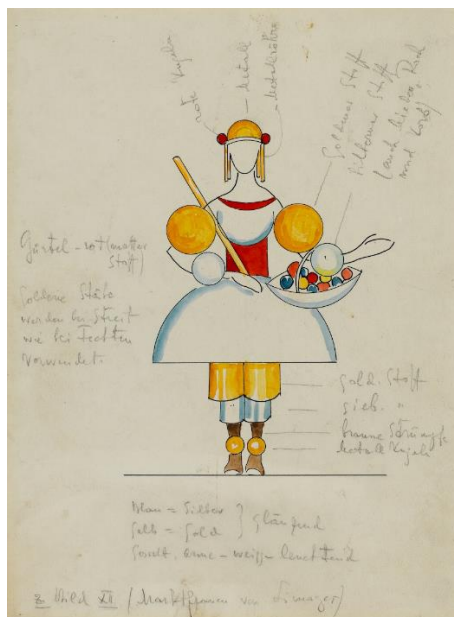 rote Kugeln
Metall
Metallröhre
Goldener Stoff
silberner Stoff
(auch lieber, Rock
und Korb)
Gürtel – rot (matter
Stoff)
Goldene Stäbe
werden bei Streit
wie bei Fechten
verwendet.
gold. Stoff
silb. "
braune Strümpfe
Metall Kugeln
Blau = Silber
Gelb = Gold } glänzend
Gesicht, Arme – weiss – leuchtend
z. Bild XII (Marktfrauen von Limoges)